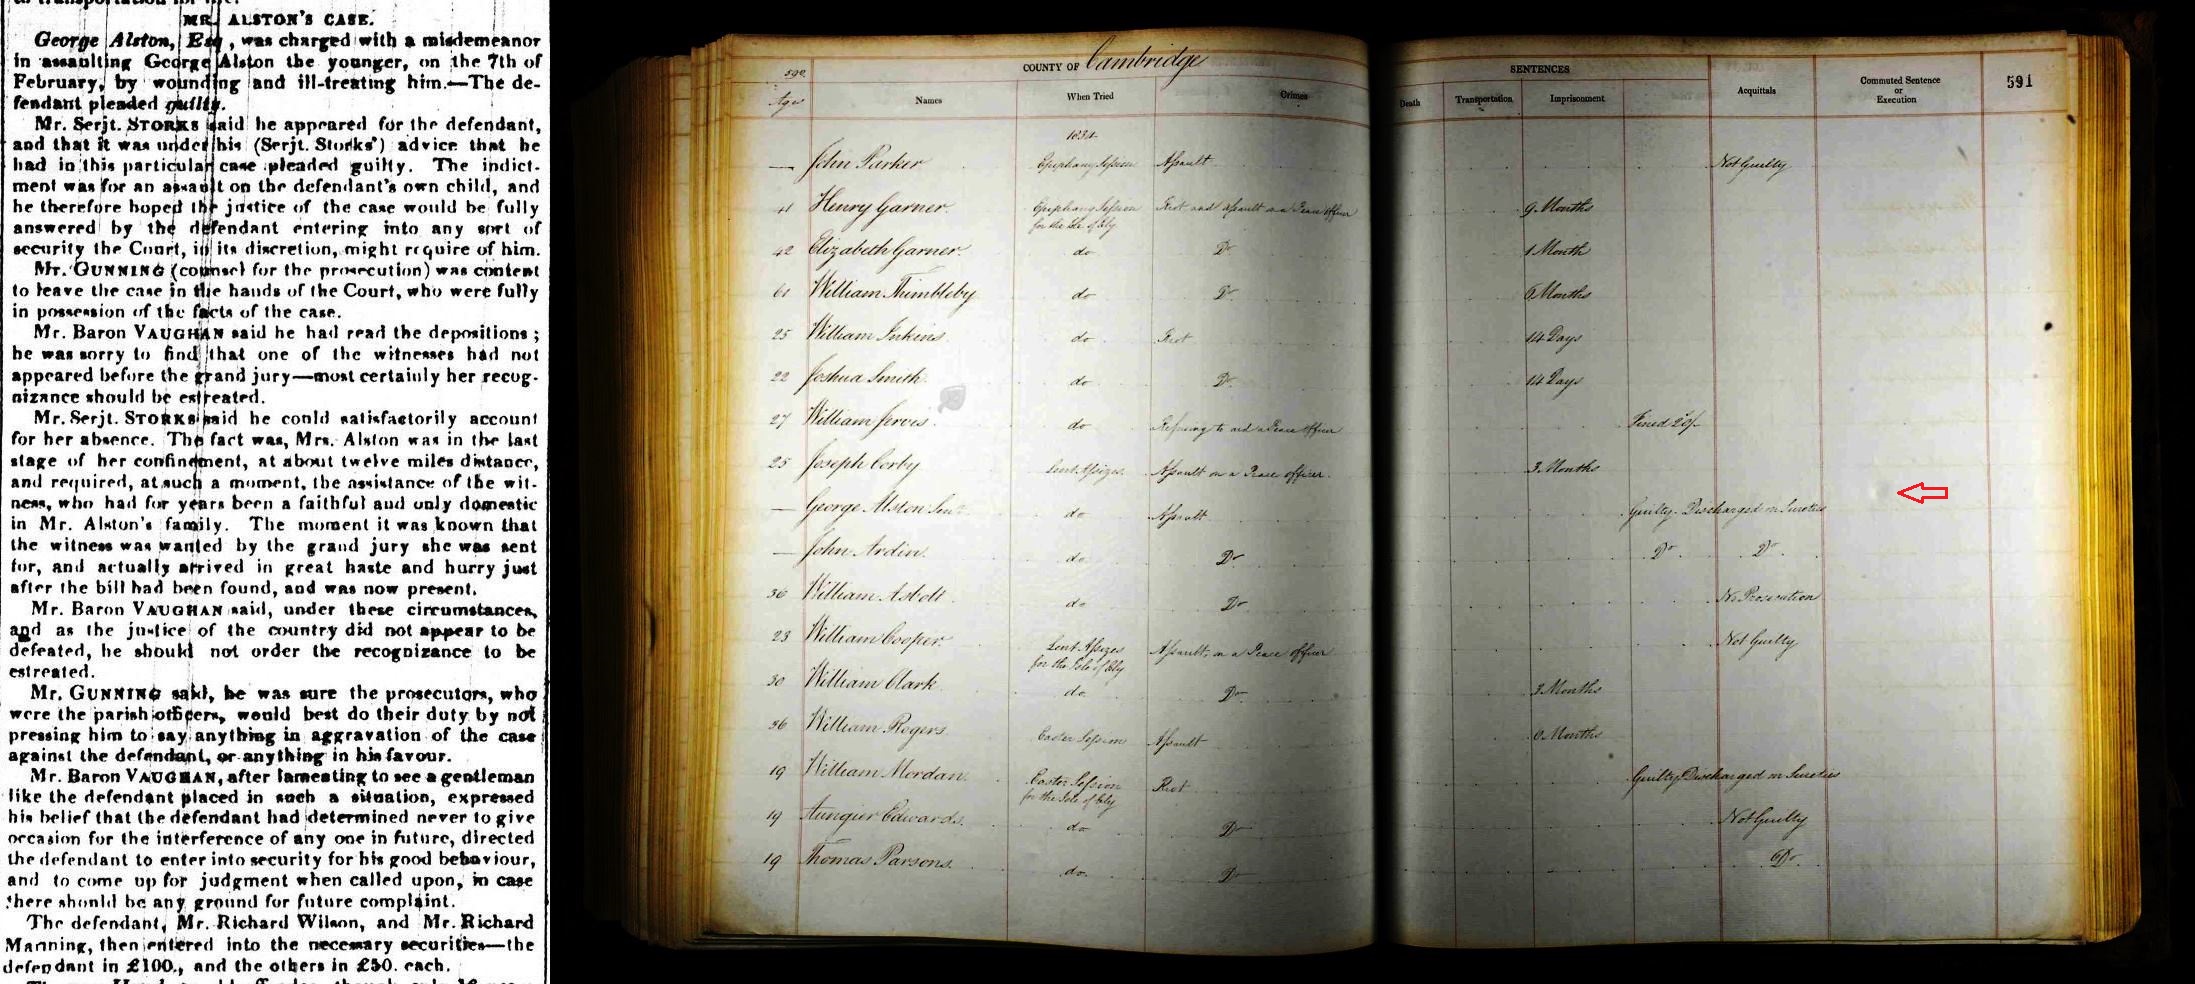 MR. ALSTON'S CASE.
George Alston, Esq, was charged with a misdemeanor
in assaulting George Alston the younger, on the 7th of
February, by wounding and ill-treating him.—The de-
fendant pleaded guilty.
Mr. Serjt. STORKS said he appeared for the defendant,
and that it was under his (Serjt. Storks') advice that he
had in this particular case pleaded guilty. The indict-
ment was for an assault on the defendant's own child, and
he therefore hoped the justice of the case would be fully
answered by the defendant entering into any sort of
security the Court, in its discretion, might require of him.
Mr. GUNNING (counsel for the prosecution) was content
to leave the case in the hands of the Court, who were fully
in possession of the facts of the case.
Mr. Baron VAUGHAN said he had read the depositions;
he was sorry to find that one of the witnesses had not
appeared before the grand jury—most certainly her recog-
nizance should be estreated.
Mr. Serjt. STORKS said he could satisfactorily account
for her absence. The fact was, Mrs. Alston was in the last
stage of her confinement, at about twelve miles distance,
and required, at such a moment, the assistance of the wit-
ness, who had for years been a faithful and only domestic
in Mr. Alston's family. The moment it was known that
the witness was wanted by the grand jury she was sent
for, and actually arrived in great haste and hurry just
after the bill had been found, and was now present.
Mr. Baron VAUGHAN said, under these circumstances,
and as the justice of the country did not appear to be
defeated, he should not order the recognizance to be
estreated.
Mr. GUNNING said, he was sure the prosecutors, who
were the parish officers, would best do their duty by not
pressing him to say anything in aggravation of the case
against the defendant, or anything in his favour.
Mr. Baron VAUGHAN, after lamenting to see a gentleman
like the defendant placed in such a situation, expressed
his belief that the defendant had determined never to give
occasion for the interference of any one in future, directed
the defendant to enter into security for his good behaviour,
and to come up for judgment when called upon, in case
there should be any ground for future complaint.
The defendant, Mr. Richard Wilson, and Mr. Richard
Manning, then entered into the necessary securities—the
defendant in £100., and the others in £50. each.
590 COUNTY OF Cambridge
Ages Names When Tried Crimes
1834
— John Parker Epiphany Session Assault
41 Henry Garner Epiphany Session for the Isle of Ely Riot and Assault on a Peace Officer
42 Elizabeth Garner do Do
61 William Thimbleby do Do
25 William Inkins do Riot
22 Joshua Smith do Do
27 William Jervis do Refusing to aid a Peace Officer
25 Joseph Corby Lent Assizes Assault on a Peace Officer
— George Alston Senr do Assault
— John Ardin do Do
36 William Asbolt do Do
23 William Cooper Lent Assizes for the Isle of Ely Assault on a Peace Officer
30 William Clark do Do
36 William Rogers Easter Session Assault
19 William Mordan Easter Session for the Isle of Ely Riot
19 Aungier Edwards do Do
19 Thomas Parsons do Do
SENTENCES 591
Death Transportation Imprisonment Acquittals Commuted Sentence or Execution
Not Guilty
9 Months
1 Month
6 Months
14 Days
14 Days
Fined 20/-
3 Months
Guilty. Discharged on Sureties
Do Do
No Prosecution
Not Guilty
3 Months
6 Months
Guilty Discharged on Sureties
Not Guilty
Do